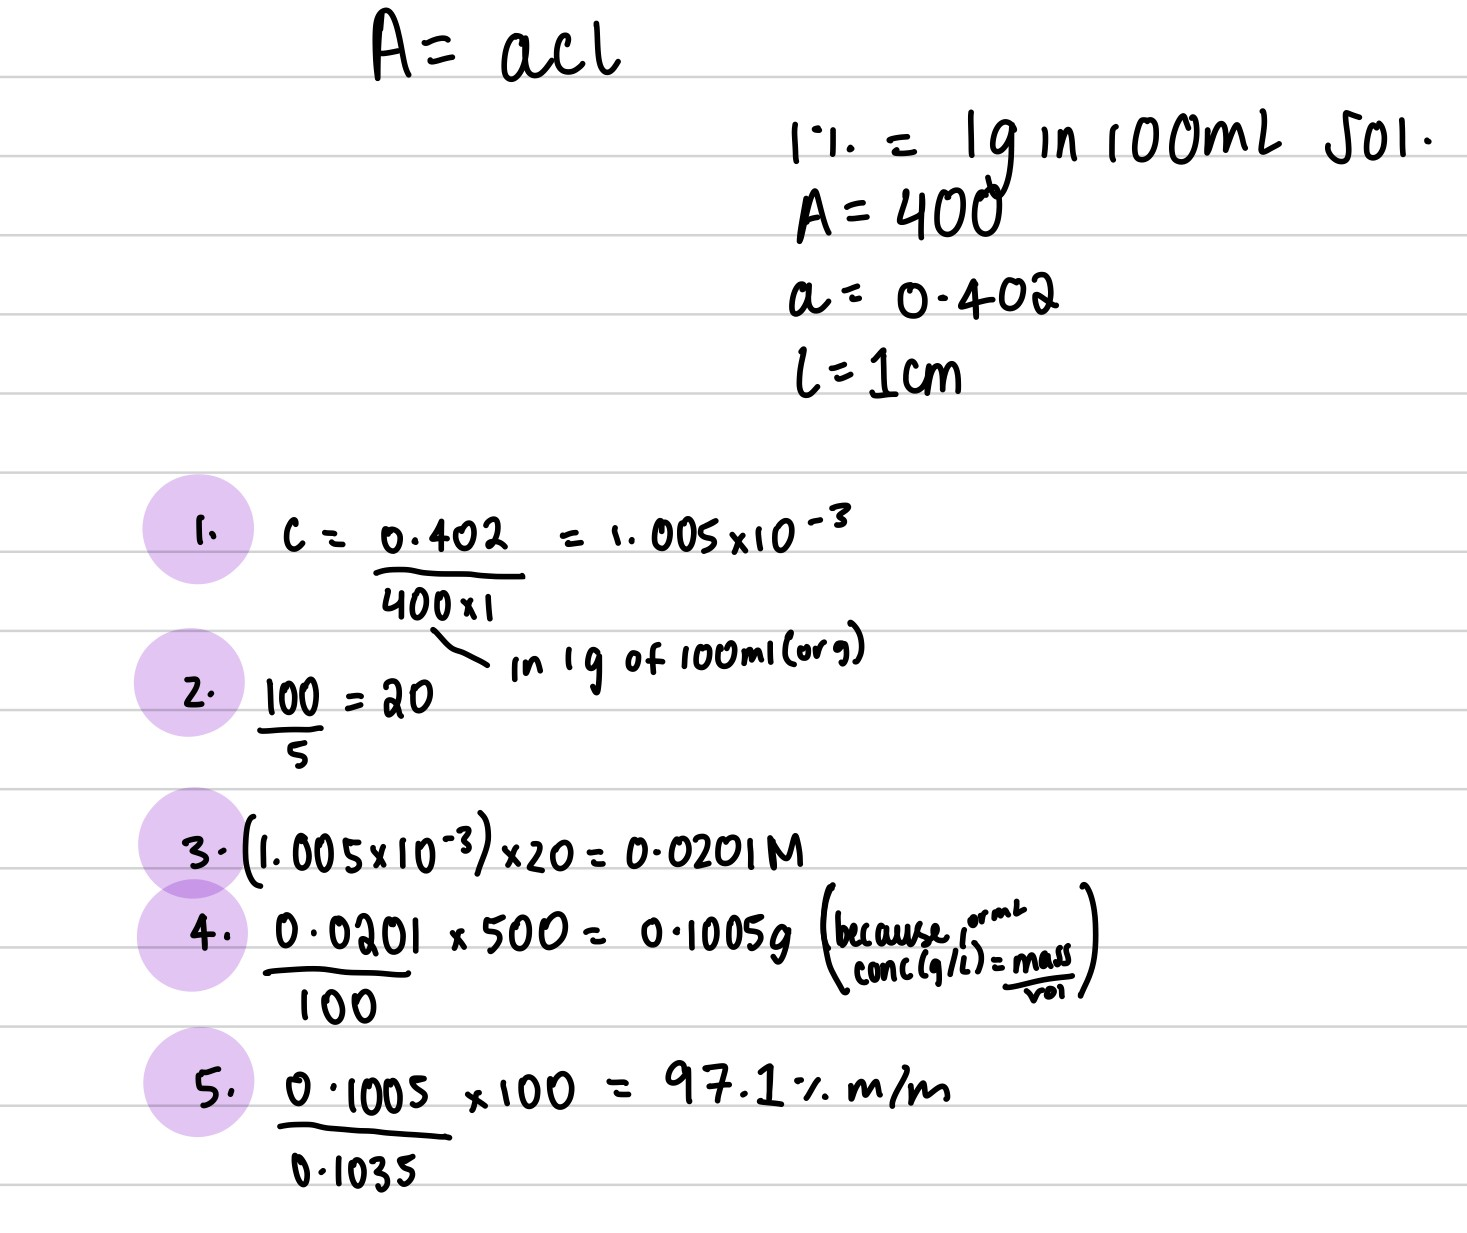 A = acl
1% = 1g in 100mL sol.
A = 400
a = 0.402
l = 1cm
1. C = 0.402 / 400 x 1 = 1.005 x 10^-3
in 1g of 100ml (org)
2. 100 / 5 = 20
3. (1.005 x 10^-3) x 20 = 0.0201 M
4. 0.0201 / 100 x 500 = 0.1005g (because, conc (g/L or mL) = mass / vol)
5. 0.1005 / 0.1035 x 100 = 97.1% m/m